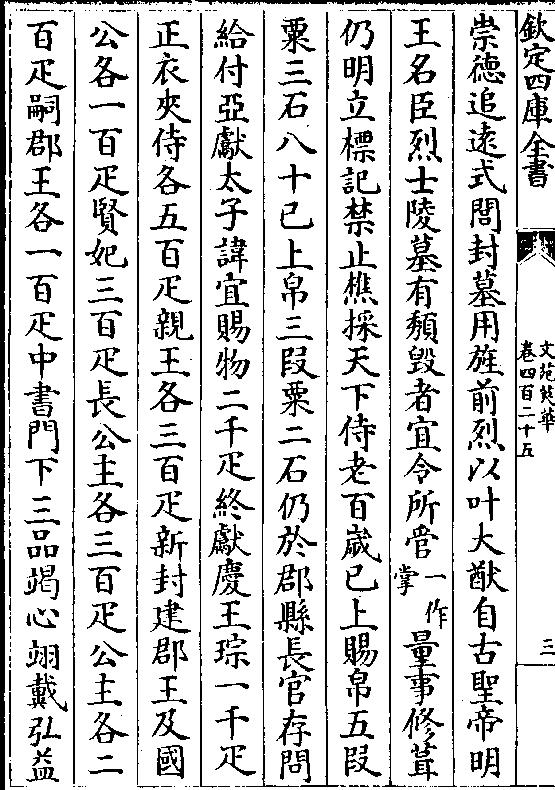 欽定四庫全書
文苑英華
卷四百二十五
三
崇德追遠式閭封墓用旌前烈以叶大猷自古聖帝明
王名臣烈士陵墓有頽毀者宜令所管一作掌量事修葺
仍明立標記禁止樵採天下侍老百歲已上賜帛五段
粟三石八十已上帛三段粟二石仍於郡縣長官存問
給付亞獻太子諱宜賜物二千疋終獻慶王琮一千疋
正衣夾侍各五百疋親王各三百疋新封建郡王及國
公各一百疋賢妃三百疋長公主各三百疋公主各二
百疋嗣郡王各一百疋中書門下三品竭心翊戴弘益